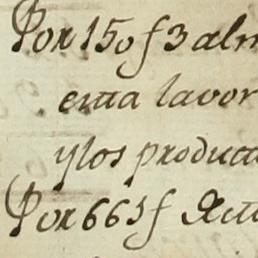 Por 150 f 3 alm
enta lavor
y los product
Por 665 f